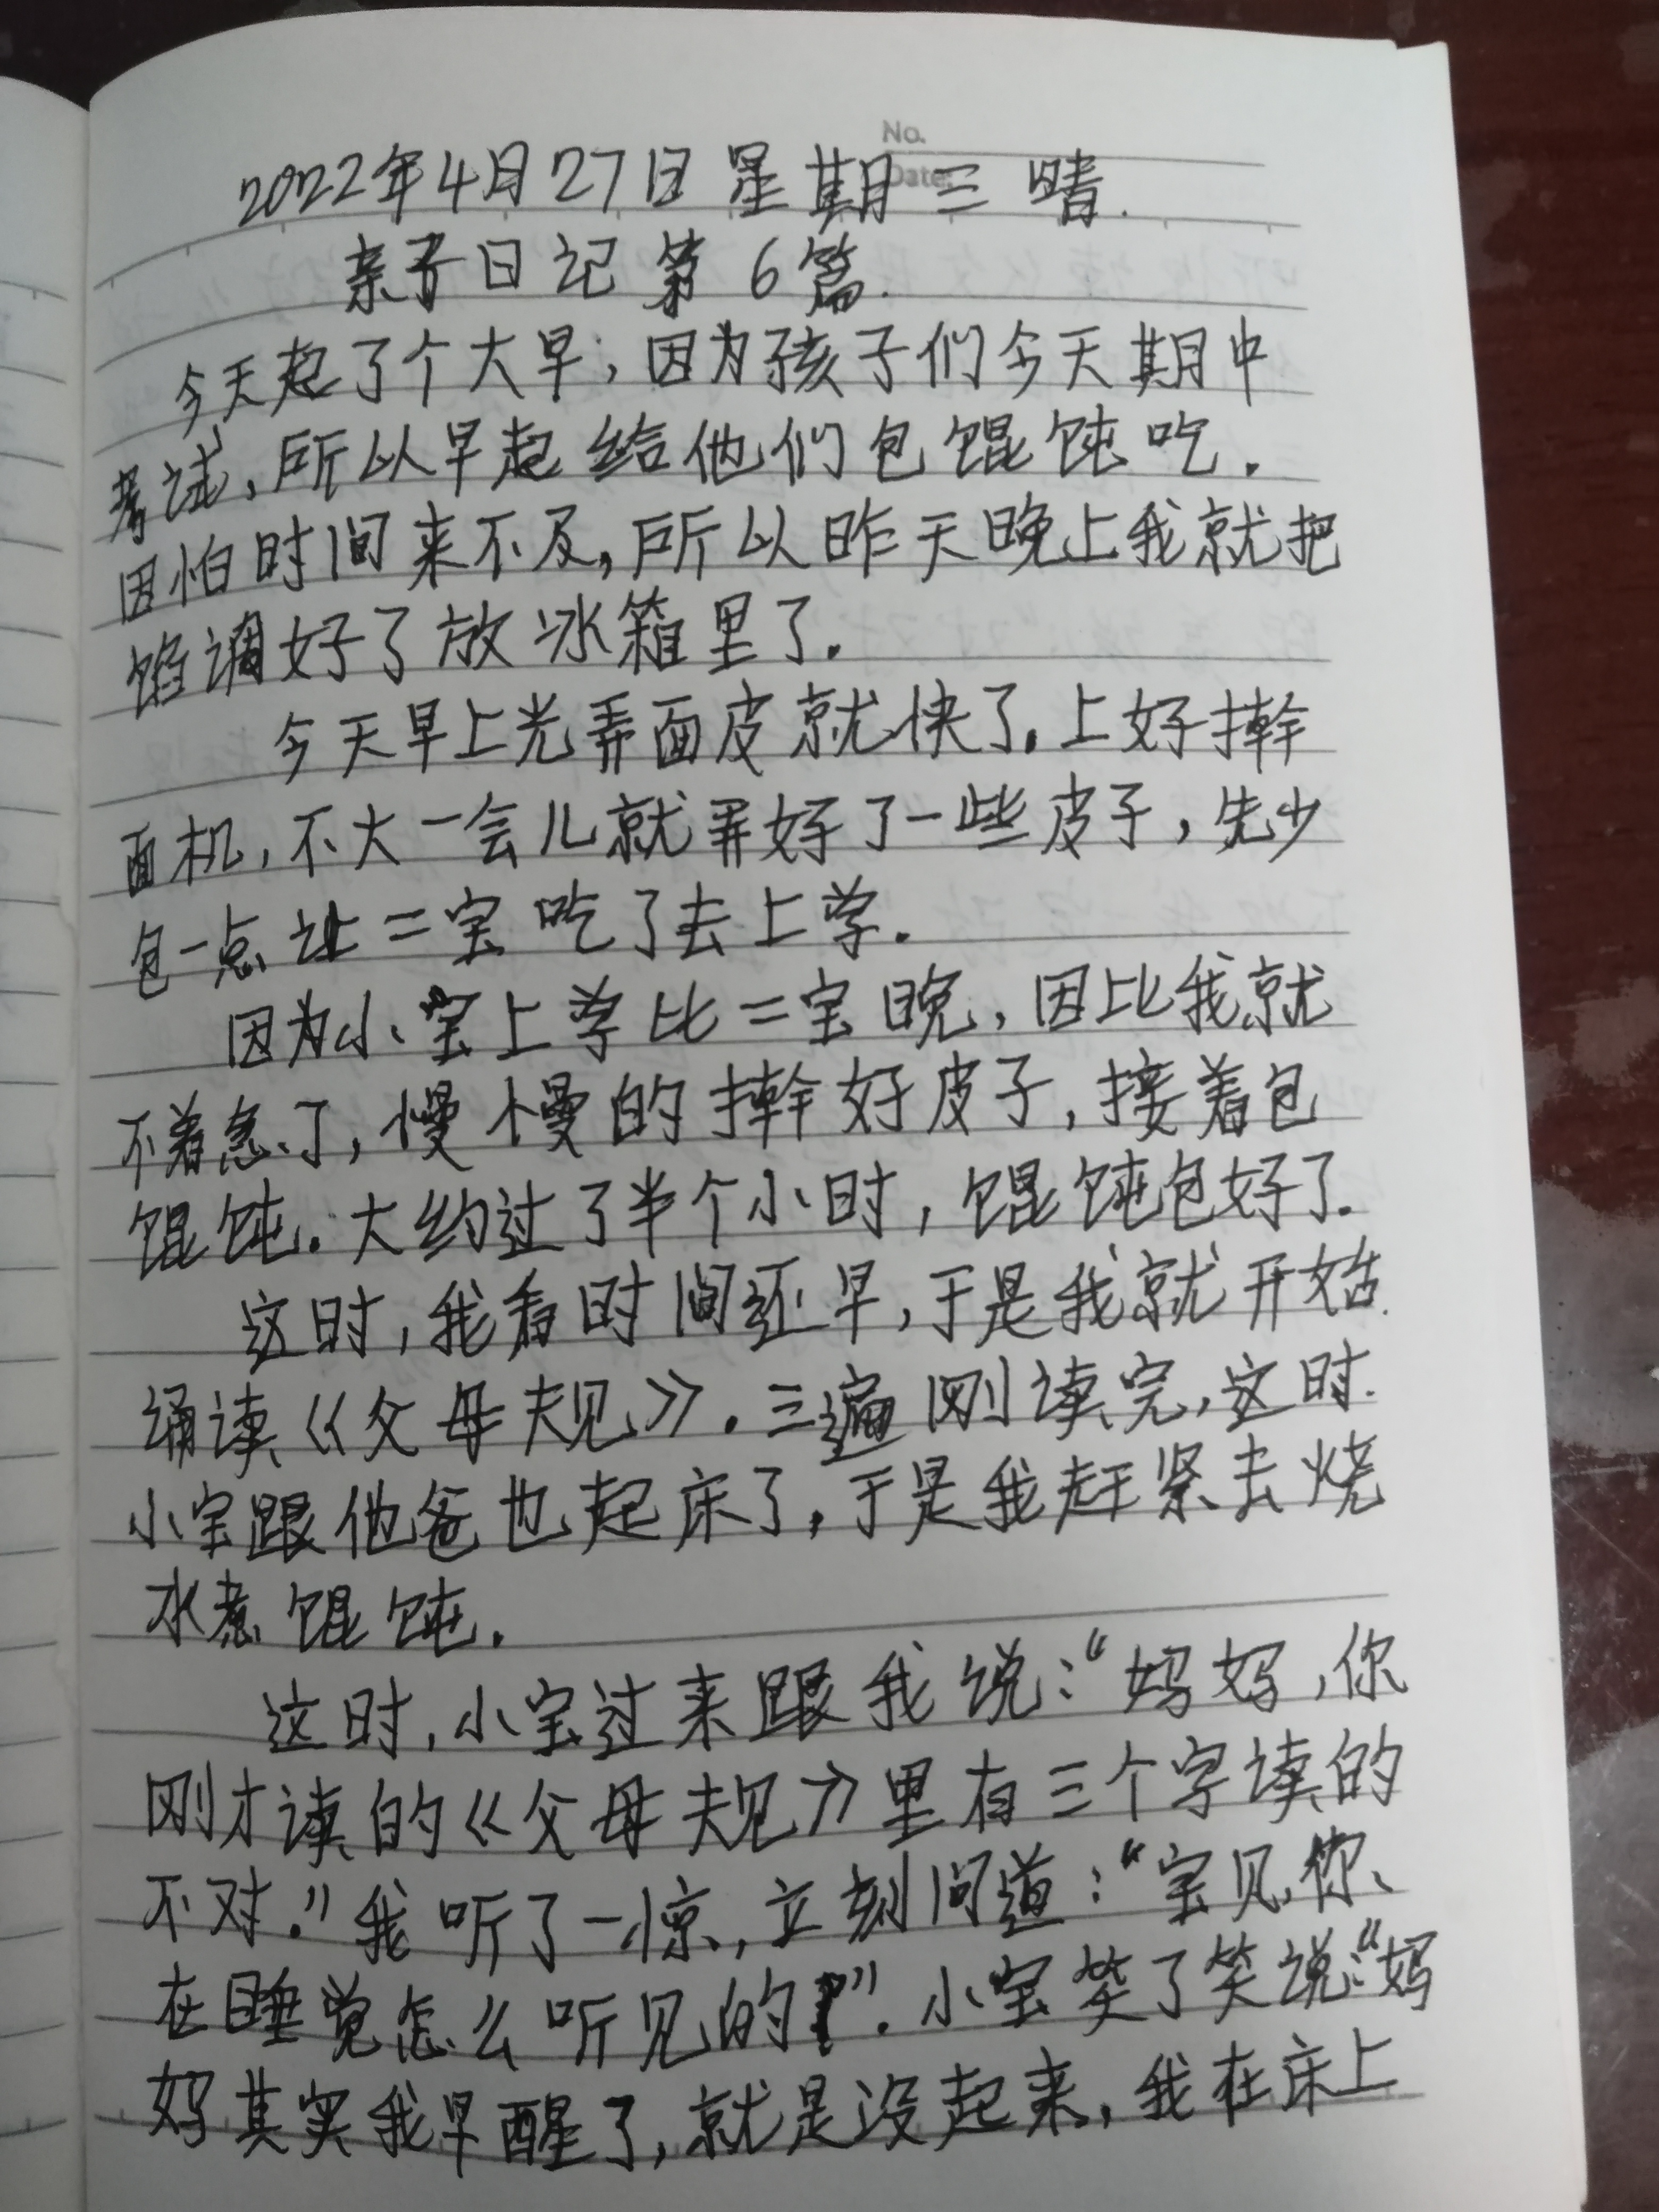 No.
Date:
2022年4月27日 星期三 晴.
亲子日记 第6篇.
今天起了个大早,因为孩子们今天期中
考试,所以早起给他们包馄饨吃.
因怕时间来不及,所以昨天晚上我就把
馅调好了放冰箱里了.
今天早上光弄面皮就快了.上好擀
面机,不大一会儿就弄好了一些皮子,先少
包一点让二宝吃了去上学.
因为小宝上学比二宝晚,因比我就
不着急了,慢慢的擀好皮子,接着包
馄饨.大约过了半个小时,馄饨包好了.
这时,我看时间还早,于是我就开始
诵读《父母规》.三遍刚读完,这时
小宝跟他爸也起床了,于是我赶紧去烧
水煮馄饨.
这时,小宝过来跟我说:“妈妈,你
刚才读的《父母规》里有三个字读的
不对.”我听了一惊,立刻问道:“宝贝,你
在睡觉怎么听见的?”.小宝笑了笑说:“妈
妈其实我早醒了,就是没起来,我在床上